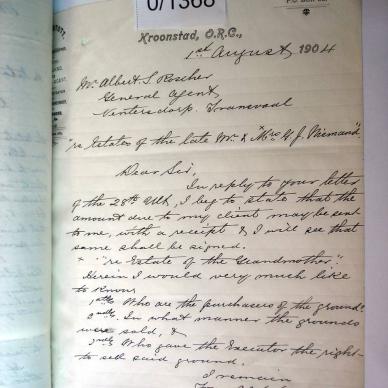 0/1368
P.O. Box
Kroonstad, O.R.C.,
1st August, 1904
Mr Albert S. Roscher
General Agent
Ventersdorp. Transvaal
"re Estates of the late Mr. & Mrs H. J. Niemand"
Dear Sir,
In reply to your letter
of the 28th Ult, I beg to state that the
amount due to my client may be sent
to me, with a receipt & I will see that
same shall be signed.
"re Estate of the Grandmother"
Herein I would very much like
to know
1stly Who are the purchasers of the ground.
2ndly In what manner the grounds
were sold, &
3rdly Who gave the Executor the right
to sell said ground.
I remain